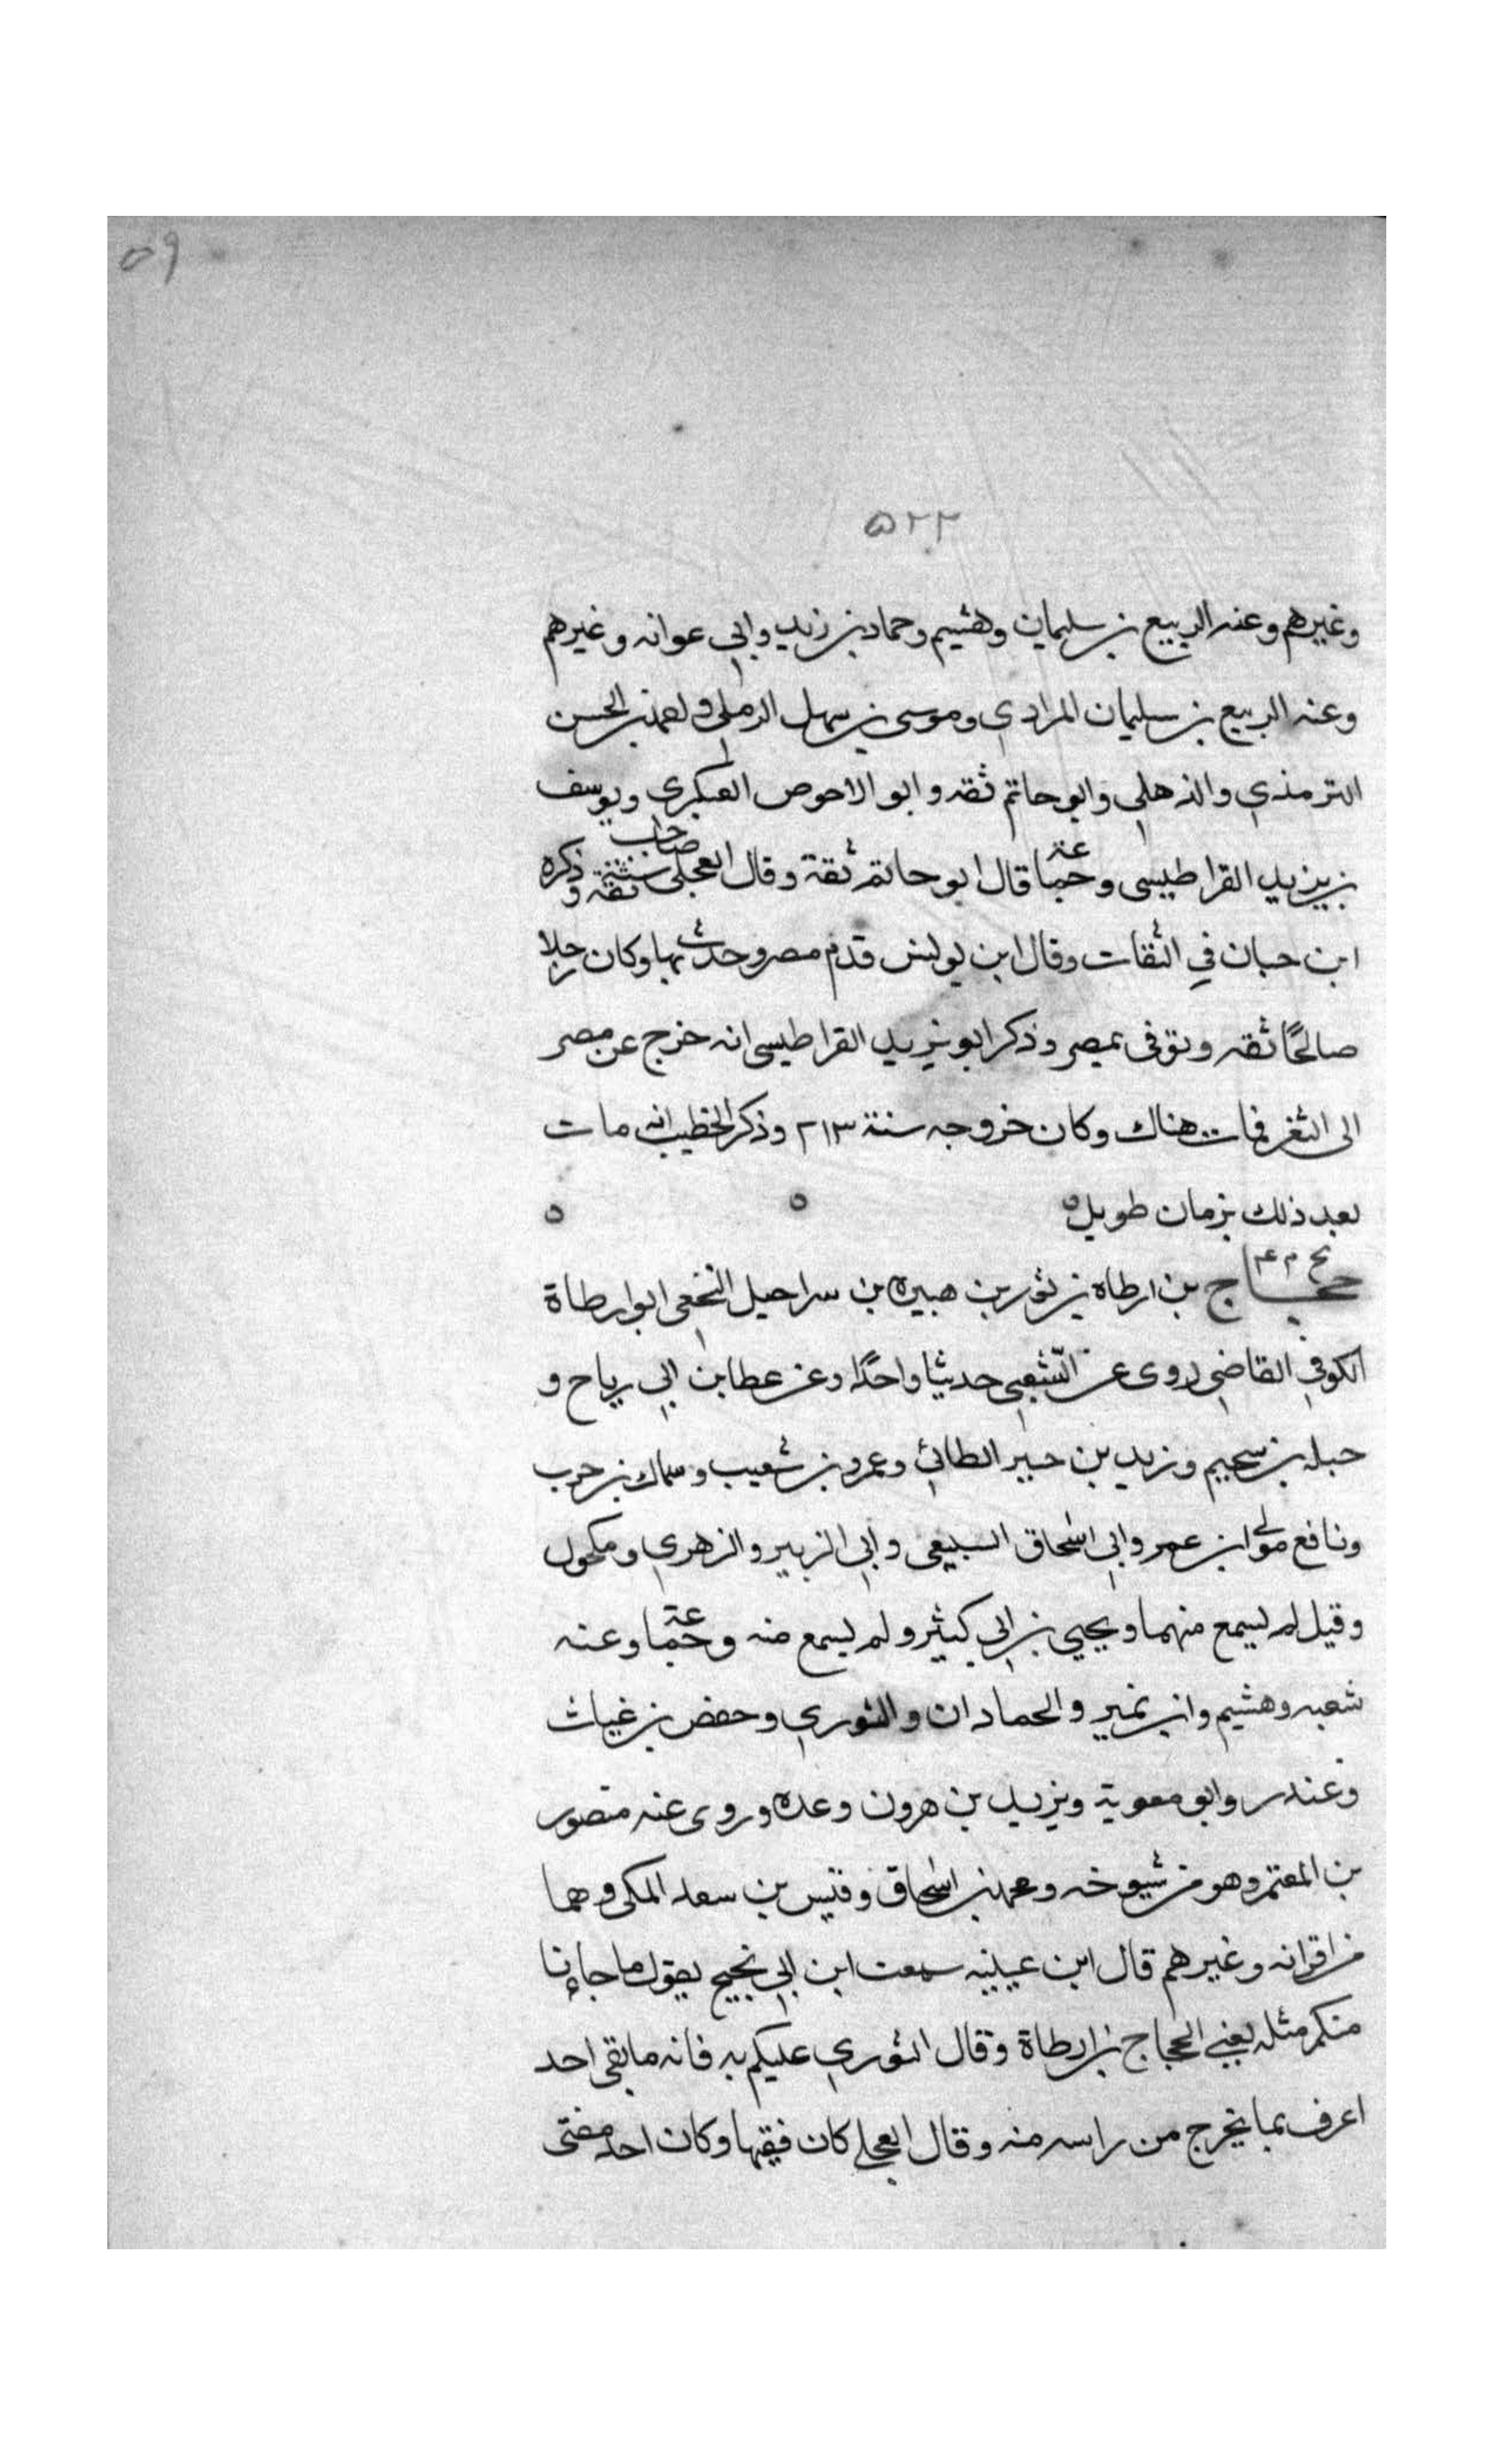 ٥٩
٥٢٢
وغيرهم وعنه الربيع بن سليمان وهشيم وحماد بن زيد وابي عوانه وغيرهم
وعنه الربيع بن سليمان المرادي وموسى بن سهل الرملي ومحمد بن الحسن
الترمذي والذهلي وابو حاتم ثقه وابو الاحوص العكبري ويوسف
بن يزيد القراطيسى وجماعة قال ابو حاتم ثقة وقال العجلى ثقه صاحب سنة وذكره
ابن حبان في الثقات وقال ابن يونس قدم مصر وحدث بها وكان رجلا
صالحًا ثقه وتوفى بمصر وذكر ابو يزيد القراطيسى انه خرج عن مصر
الى الثغر فمات هناك وكان خروجه سنة ٢١٣ وذكر الخطيب انه مات
بعد ذلك بزمان طويل ٥ ٥ ٥
بخ م ٤
حجاج بن ارطاه بن ثور بن هبيره بن سراحيل النخعي ابو ارطاة
الكوفي القاضي روى عن الشعبي حديثا واحدًا وعن عطا بن ابي رباح و
جبله بن سحيم وزيد بن جبير الطائي وعمرو بن شعيب وسماك بن حرب
ونافع مولى ابن عمر وابي اسحاق السبيعى وابي الزبير والزهري ومكحول
وقيل لم يسمع منهما ويحيي بن ابي كثير ولم يسمع منه وجماعة وعنه
شعبه وهشيم وابن نمير والحمادان والثوري وحفص بن غياث
وغندر وابو معوية ويزيد بن هرون وعده وروى عنه منصور
بن المعتمر وهو من شيوخه ومحمد بن اسحاق وقيس بن سعد المكى وهما
من اقرانه وغيرهم قال ابن عيينه سمعت ابن ابي نجيح يقول ما جاءنا
منكم مثله يعني الحجاج بن ارطاة وقال الثوري عليكم به فانه ما بقى احد
اعرف بما يخرج من راسه منه وقال العجلي كان فقيها وكان احد مفتى